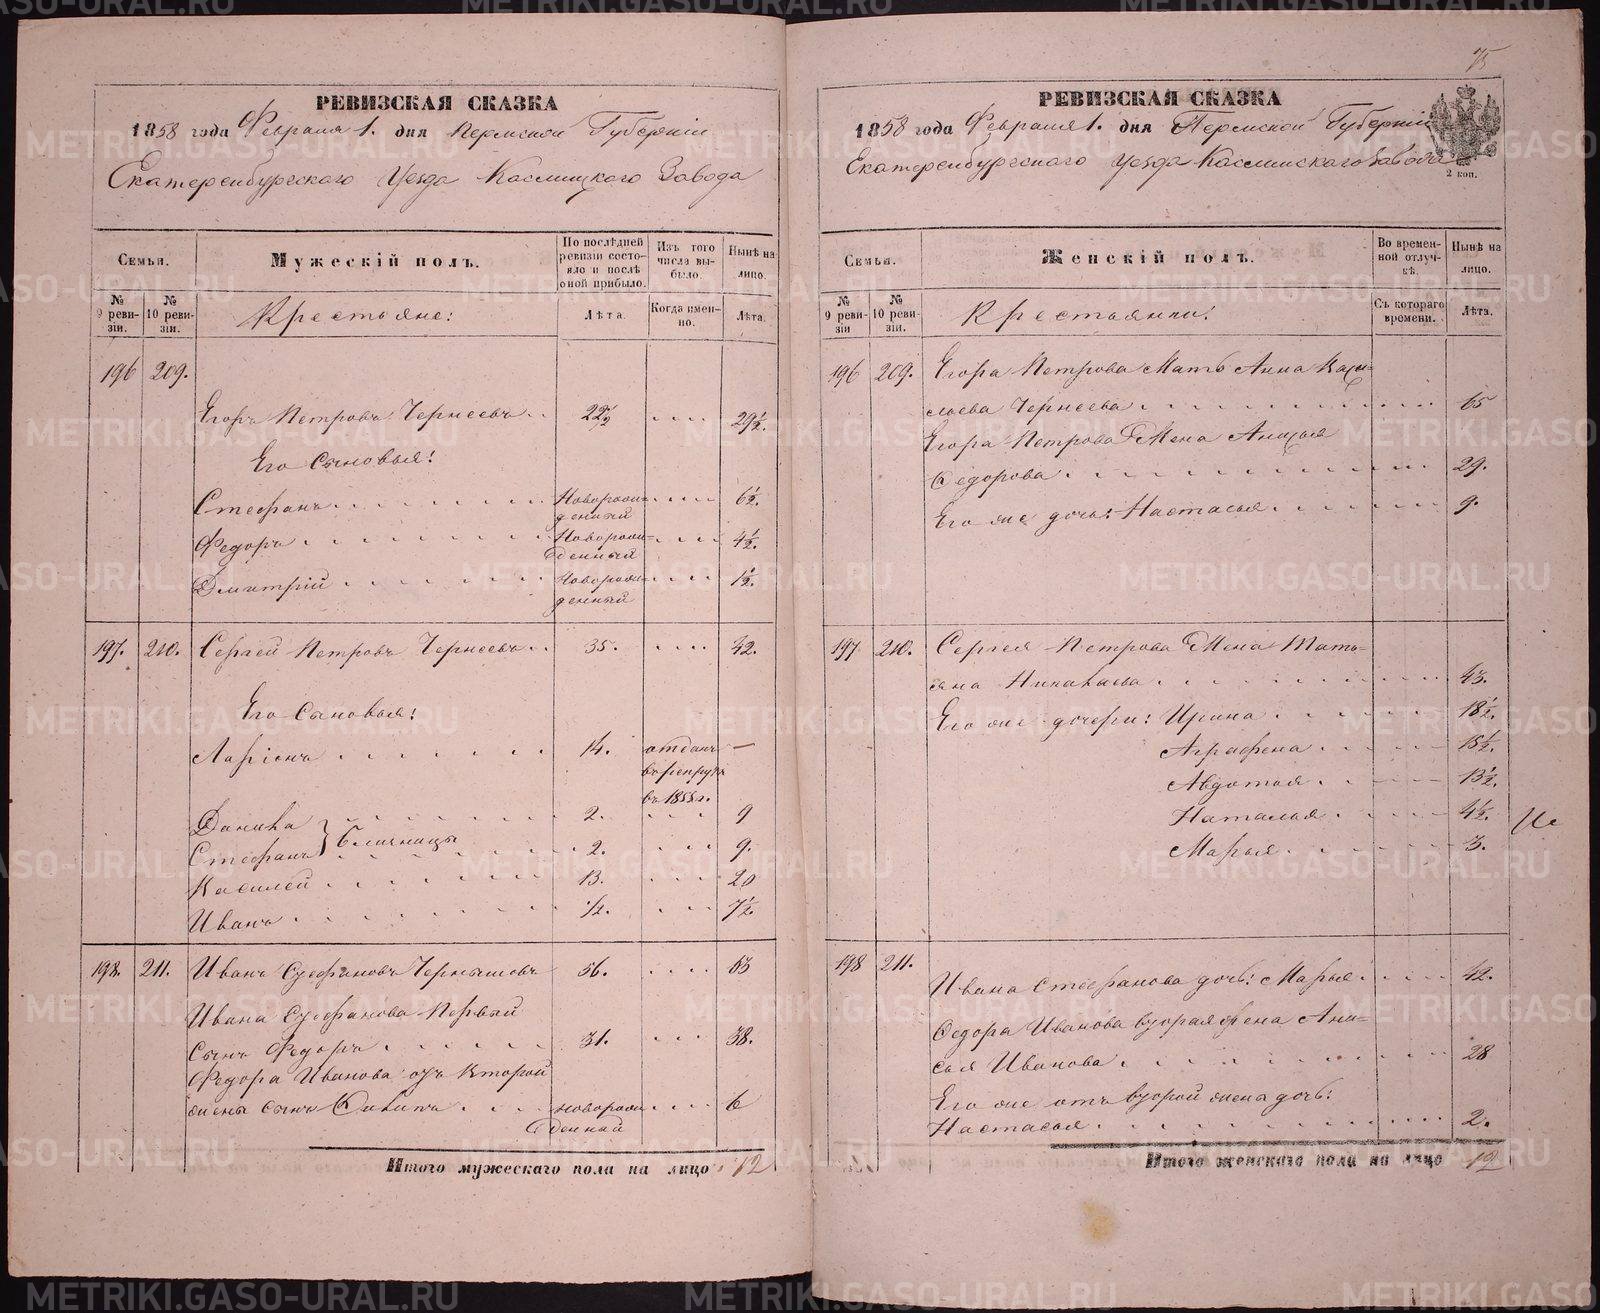 РЕВИЗСКАЯ СКАЗКА
1858 года Февраля 1. дня Пермской Губерніи
Екатеренбургскаго Уезда Каслинскаго Завода
Семьи.
Мужескій полъ.
По послѣдней ревизіи состояло и послѣ оной прибыло.
Изъ того числа выбыло.
Нынѣ на лицо.
№ 9 ревизіи.
№ 10 ревизіи.
Крестьяне:
Лѣта.
Когда именно.
Лѣта.
196 209.
Егоръ Петровъ Чернеевъ 22 1/2 29 1/2.
Его Сыновья:
Стефанъ Новорожденный 6 1/2.
Федоръ Новорожденный 4 1/2.
Дмитрій Новорожденный 1 1/2.
197. 210. Сергей Петровъ Чернеевъ 35. 42.
Его Сыновья:
Ларіонъ 14. отданъ в рекруты въ 1855 г. —
Данила 2. 9
близницы
Стефанъ 2. 9.
Василей 13. 20
Иванъ 1/2. 7 1/2.
198. 211. Иванъ Стефановъ Чернышовъ 56. 63
Ивана Стефанова Первый
сынъ Федоръ 31. 38.
Федора Иванова отъ Второй
жены сынъ новорожденный 6
Итого мужескаго пола на лицо 12
75
РЕВИЗСКАЯ СКАЗКА
1858 года Февраля 1. дня Пермской Губерніи
Екатеренбургскаго Уезда Каслинскаго Завода
2 коп.
Семьи.
Женскій полъ.
Во временной отлучкѣ.
Нынѣ на лицо.
№ 9 ревизіи
№ 10 ревизіи.
Крестьянки:
Съ котораго времени.
Лѣта.
196 209. Егора Петрова Мать Анна
Чернеева 65
Егора Петрова Жена
Федорова 29.
Его же дочь: Настасья 9.
197 210. Сергея Петрова Жена Тать-
яна Николаева 43.
Его же дочери: Ирина 18 1/2.
Аграфена 15 1/2.
Авдотья 13 1/2.
Наталья 4 1/2.
Марья 3.
198 211.
Ивана Стефанова дочь: Марья 42.
Федора Иванова вторая жена Ани-
сья Иванова 28
Его же отъ второй жены дочь:
Настасья 2.
Итого женскаго пола на лицо 12
METRIKI.GASO-URAL.RU